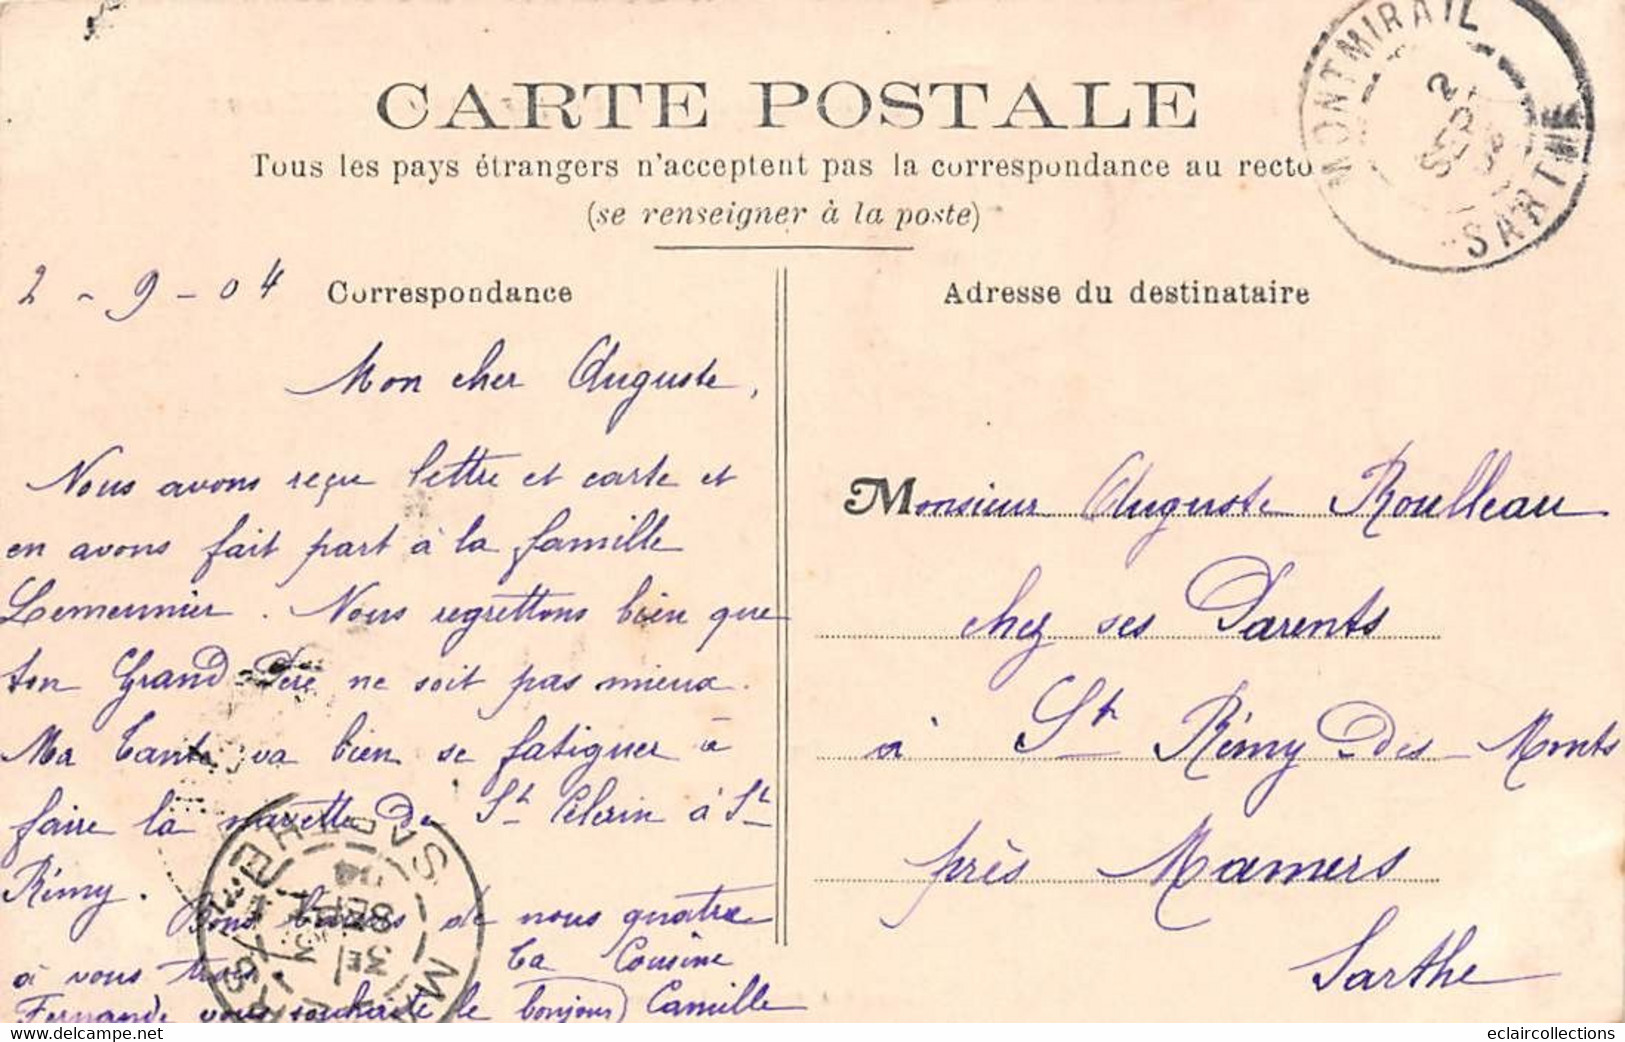 CARTE POSTALE
Tous les pays étrangers n'acceptent pas la correspondance au recto
(se renseigner à la poste)
MONTMIRAIL
2
SEPT
04
SARTHE
2 - 9 - 04
Correspondance
Mon cher Auguste,
Nous avons reçu lettre et carte et
en avons fait part à la famille
Lemeunier. Nous regrettons bien que
ton Grand-Père ne soit pas mieux.
Ma tante va bien se fatiguer à
faire la navette de St Célerin à St
Rémy.
Bons baisers de nous quatre
à vous trois. Ta Cousine
Fernande vous souhaite le bonjour) Camille
Adresse du destinataire
Monsieur Auguste Roulleau
chez ses Parents
à St Rémy-des-Monts
près Mamers
Sarthe
SARTHE
3E
3
SEPT
04
eclaircollections